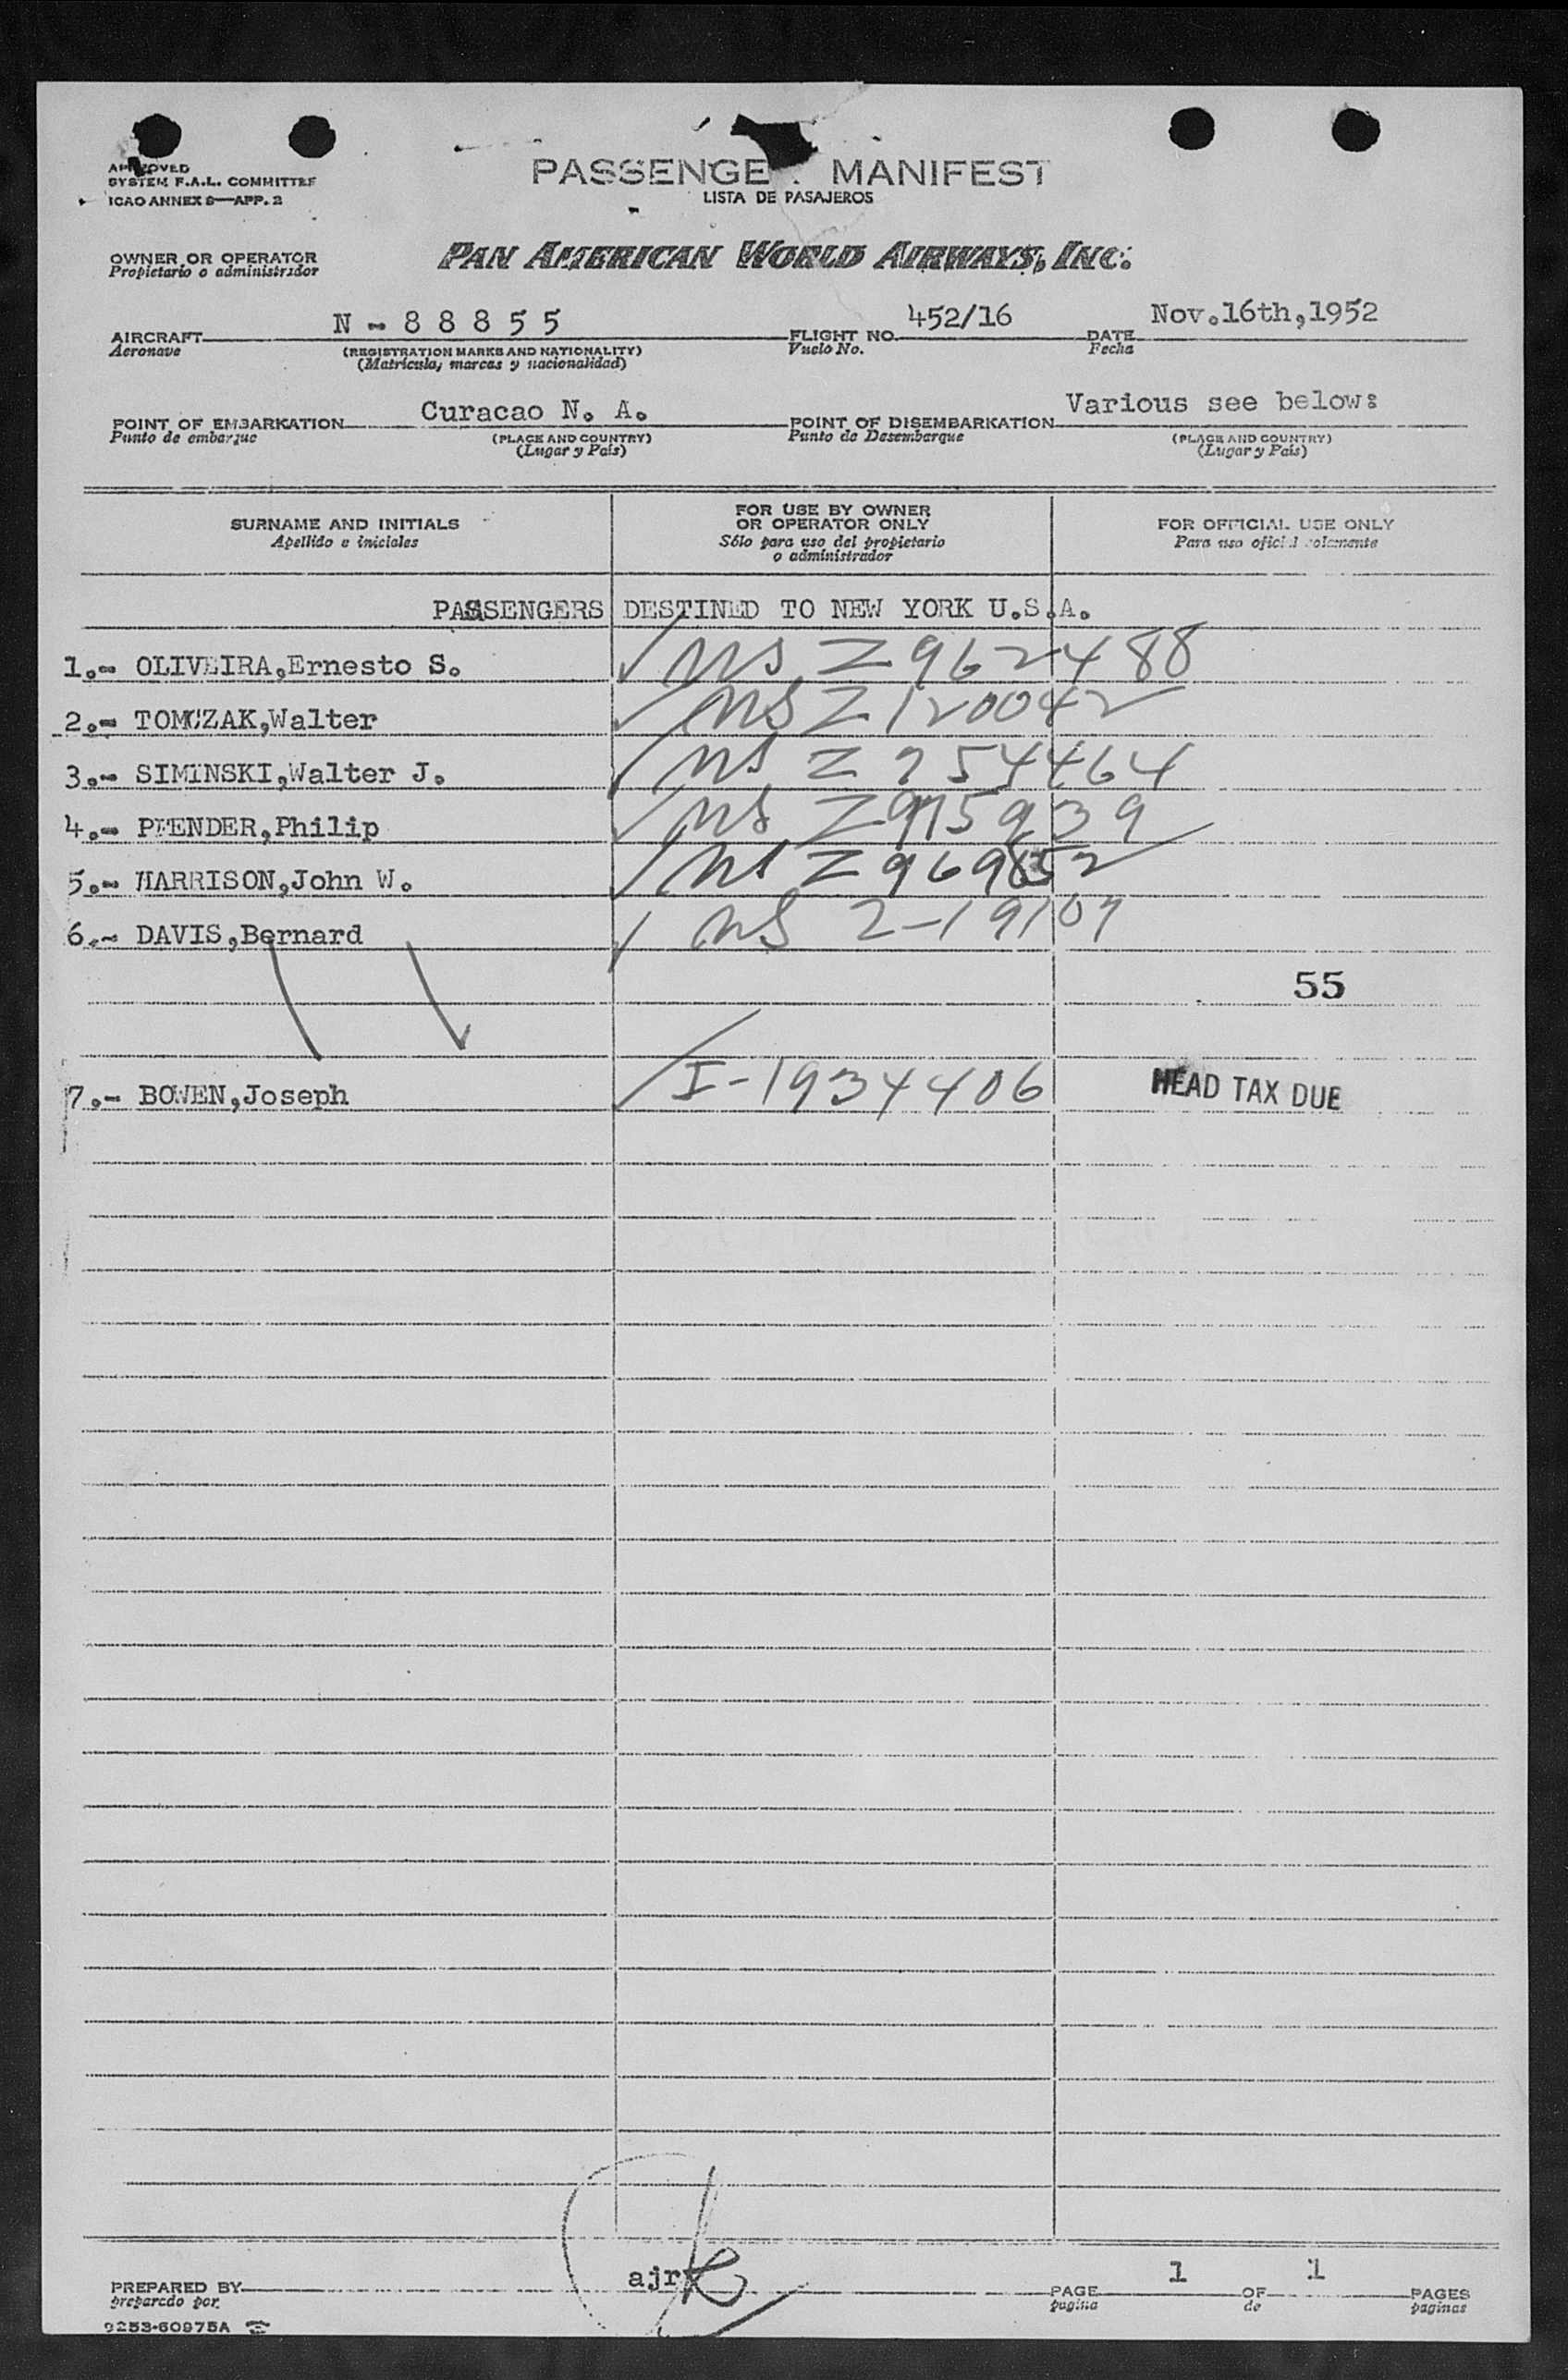 APPROVED
SYSTEM F.A.L. COMMITTEE
ICAO ANNEX 9—APP. 2
PASSENGE MANIFEST
LISTA DE PASAJEROS
OWNER OR OPERATOR
Propietario o administrador
PAN AMERICAN WORLD AIRWAYS, INC.
AIRCRAFT N - 8 8 8 5 5 FLIGHT NO. 452/16 DATE Nov.16th,1952
Aeronave (REGISTRATION MARKS AND NATIONALITY) Vuelo No. Fecha
(Matrícula, marcas y nacionalidad)
POINT OF EMBARKATION Curacao N. A. POINT OF DISEMBARKATION Various see below:
Punto de embarque (PLACE AND COUNTRY) Punto de Desembarque (PLACE AND COUNTRY)
(Lugar y País) (Lugar y País)
SURNAME AND INITIALS
Apellido e iniciales
FOR USE BY OWNER
OR OPERATOR ONLY
Sólo para uso del propietario
o administrador
FOR OFFICIAL USE ONLY
Para uso oficial solamente
PASSENGERS DESTINED TO NEW YORK U.S.A.
1.- OLIVEIRA,Ernesto S. ✓ MS Z 962488
2.- TOMCZAK,Walter ✓ MS Z 120042
3.- SIMINSKI,Walter J. ✓ MS Z 254464
4.- PFENDER,Philip ✓ MS Z 915939
5.- HARRISON,John W. ✓ MS Z
6.- DAVIS,Bernard ✓ MS Z-19109
55
7.- BOWEN,Joseph ✓ I-1934406 HEAD TAX DUE
PREPARED BY ajr PAGE 1 OF 1 PAGES
preparado por página de páginas
9253-60975A